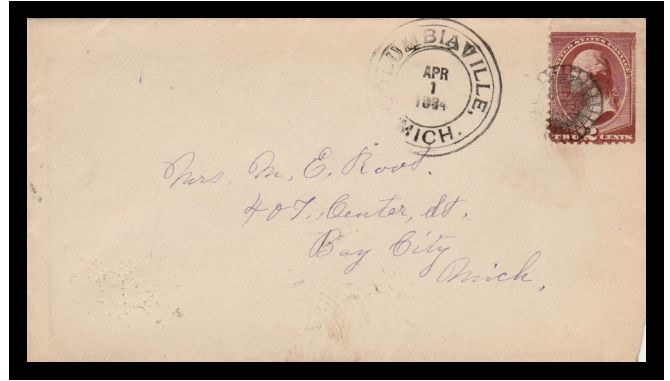 COLUMBIAVILLE,
APR
1
1884
MICH.
UNITED STATES POSTAGE
TWO 2 CENTS
Mrs. M. E. Root.
407. Center, St.
Bay City
Mich.